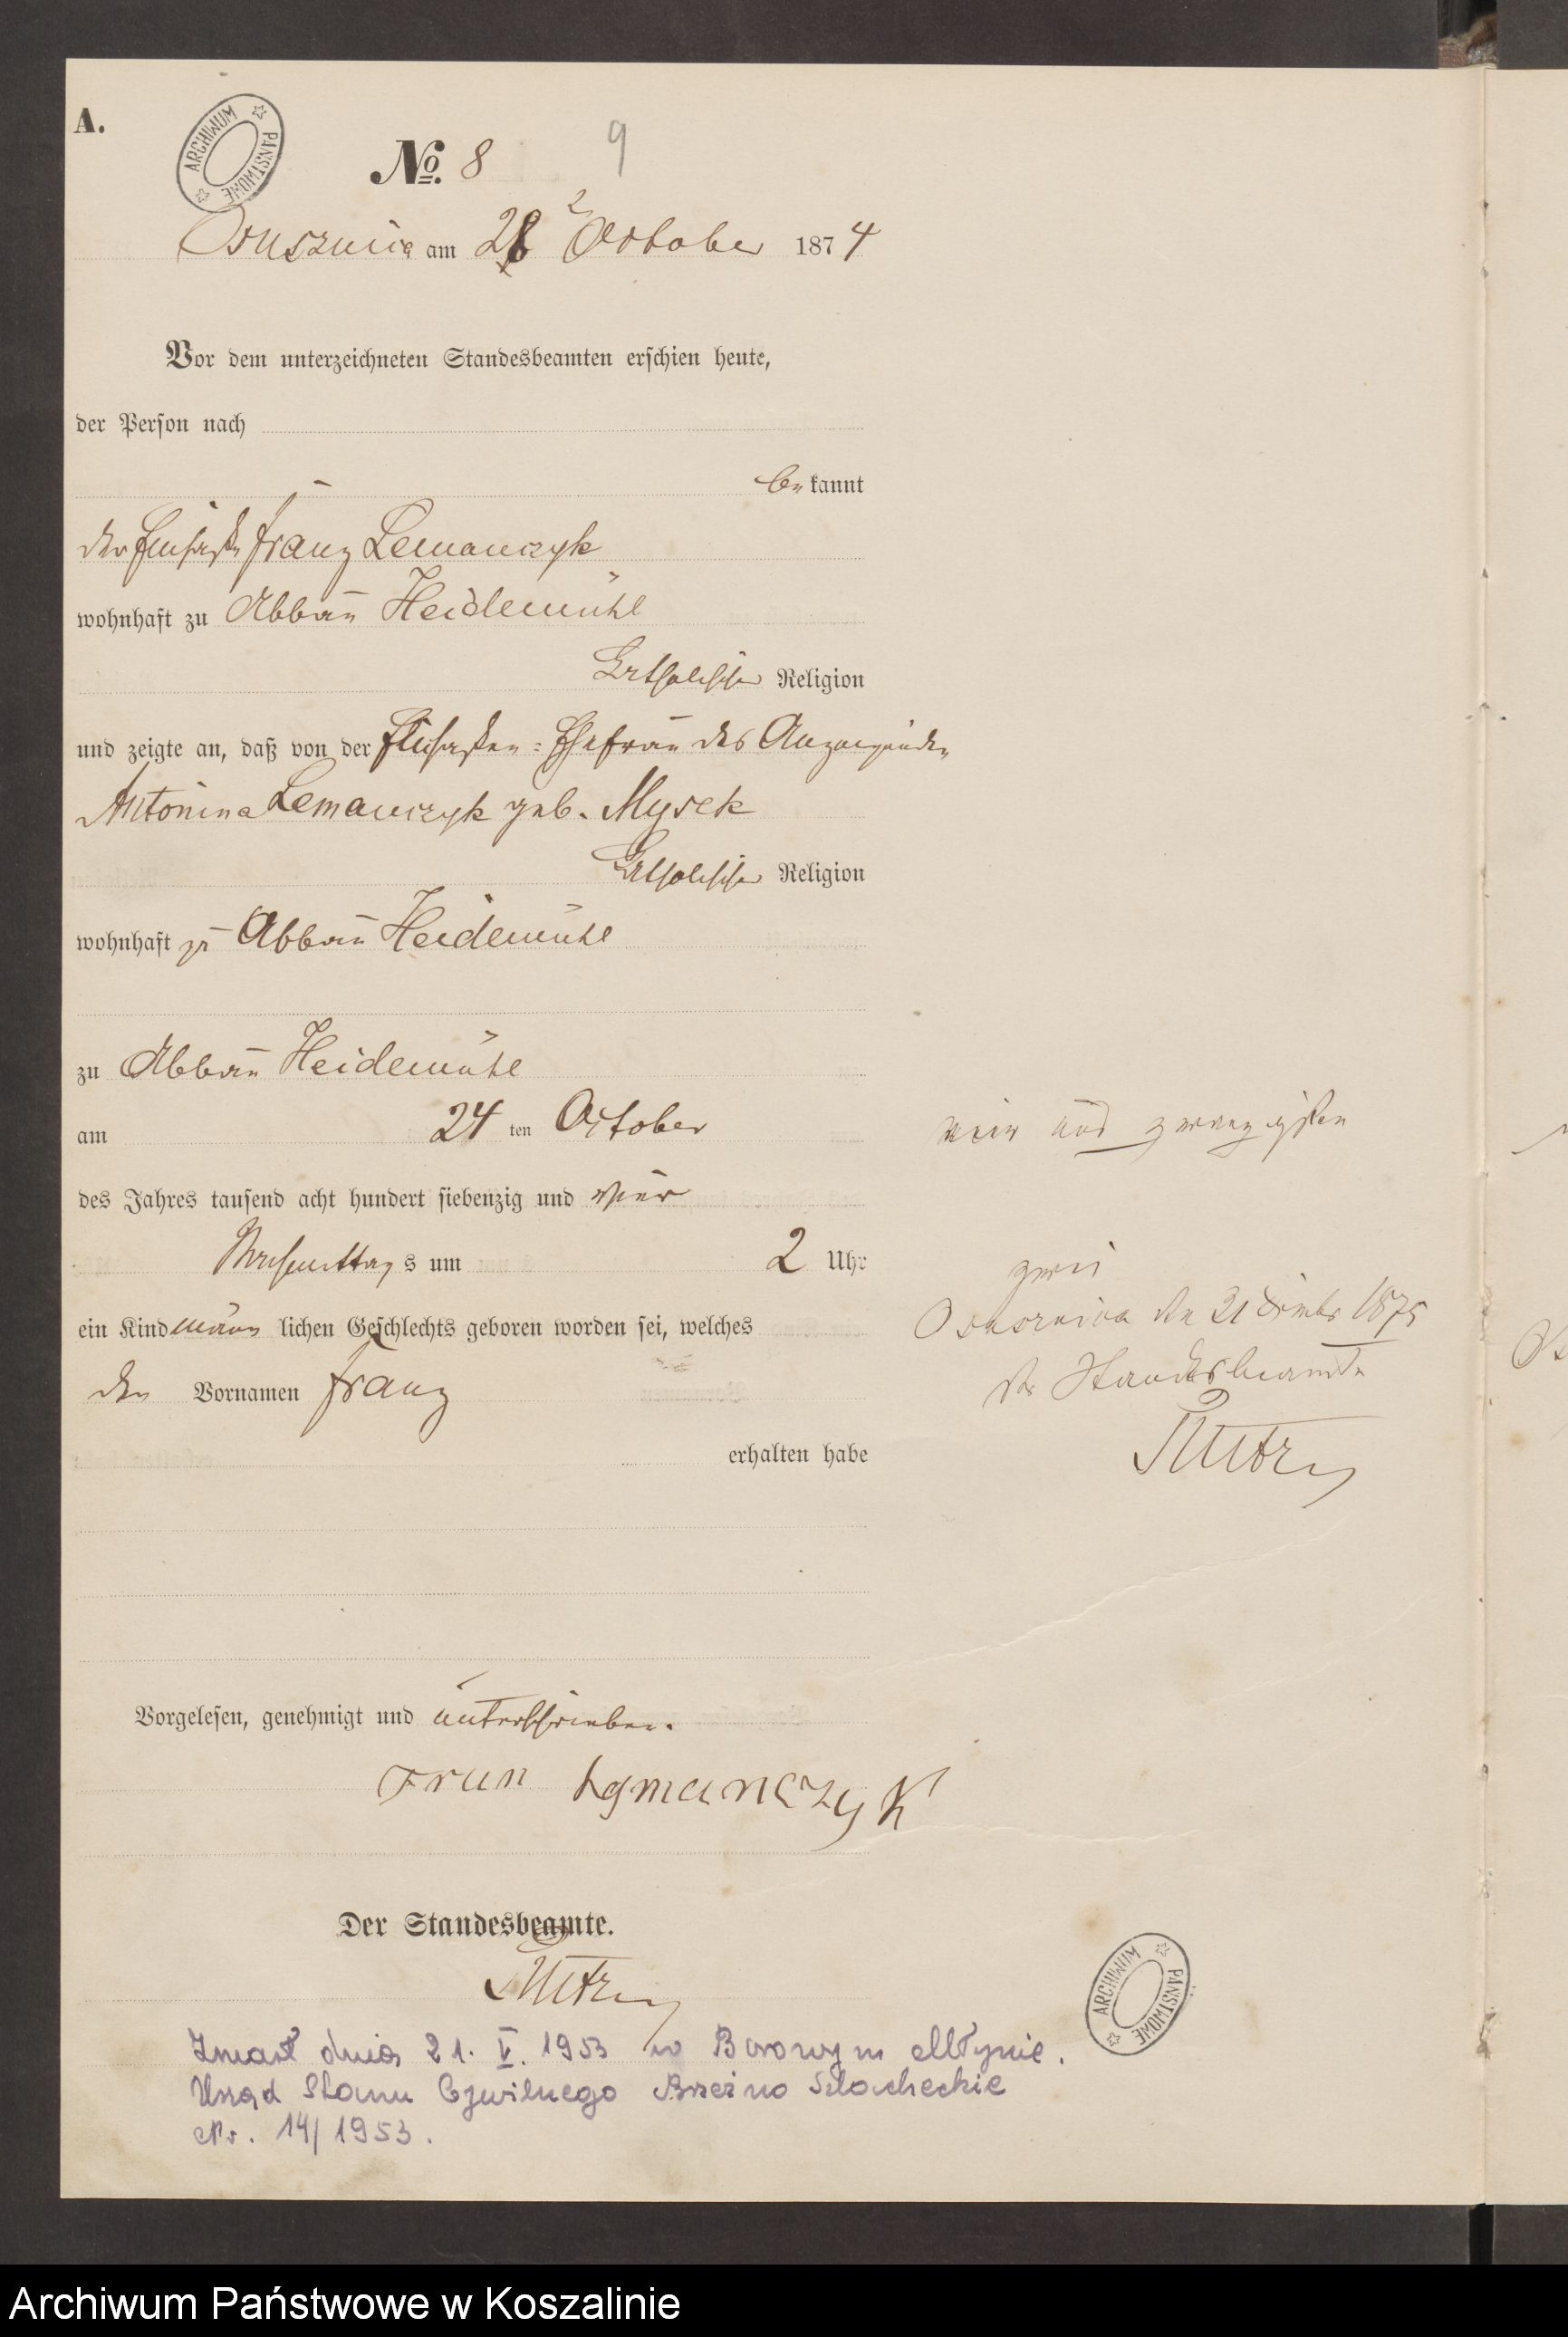 A.
ARCHIWUM PAŃSTWOWE
No. 8 9
Osuszniza am 28 October 1874
Vor dem unterzeichneten Standesbeamten erschien heute,
der Person nach
bekannt
der Einsasse Franz Lemanczyk
wohnhaft zu Abbau Heidemühl
katholischer Religion
und zeigte an, daß von der Einsassen-Ehefrau des Anzeigenden
Antonina Lemanczyk geb. Mysek
katholischer Religion
wohnhaft zu Abbau Heidemühl
zu Abbau Heidemühl
am 24 ten October
vier und zwanzigsten
des Jahres tausend acht hundert siebenzig und vier
Nachmittags um 2 Uhr
zwei
ein Kind männlichen Geschlechts geboren worden sei, welches
den 21 1875
der Standesbeamte
den Vornamen Franz
erhalten habe
Vorgelesen, genehmigt und unterschrieben.
Fran Lymanczyk
Der Standesbeamte.
Zmarł dnia 21. V. 1953 w Borowym Młynie.
Urząd Stanu Cywilnego Brzeźno Szlacheckie
Nr. 14/1953.
ARCHIWUM PAŃSTWOWE
Archiwum Państwowe w Koszalinie